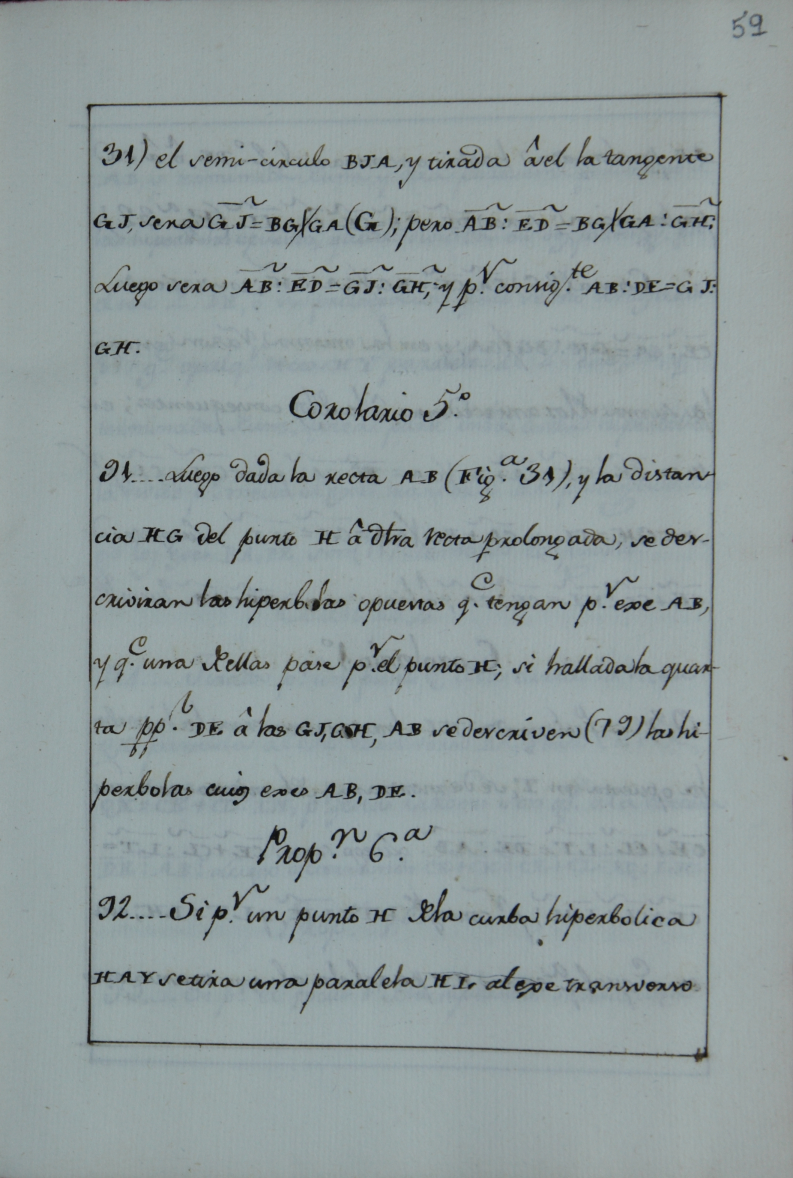 59
31) el semi-circulo BJA, y tirada â el la tangente
GJ, sera G͠J = BG X GA (G); pero A͠B : E͠D = BG X GA : G͠H;
Luego sera A͠B : E͠D = G͠J : G͠H, y p.r consig.te AB : DE = GJ :
GH.
Corolario 5.º
91.... Luego dada la recta AB (Fig.a 31), y la distan-
cia HG del punto H â dtra recta prolongada, se des-
criviran las hiperbolas opuestas q.e tengan p.r exe AB,
y q.e una de ellas pase p.r el punto H; si hallada la quar-
ta pp.l DE â las GJ, GH, AB se descriven (79) las hi-
perbolas cuios exes AB, DE.
Prop.n 6.a
92.... Si p.r un punto H de la curba hiperbolica
HAY se tira una paralela HL al exe transverso